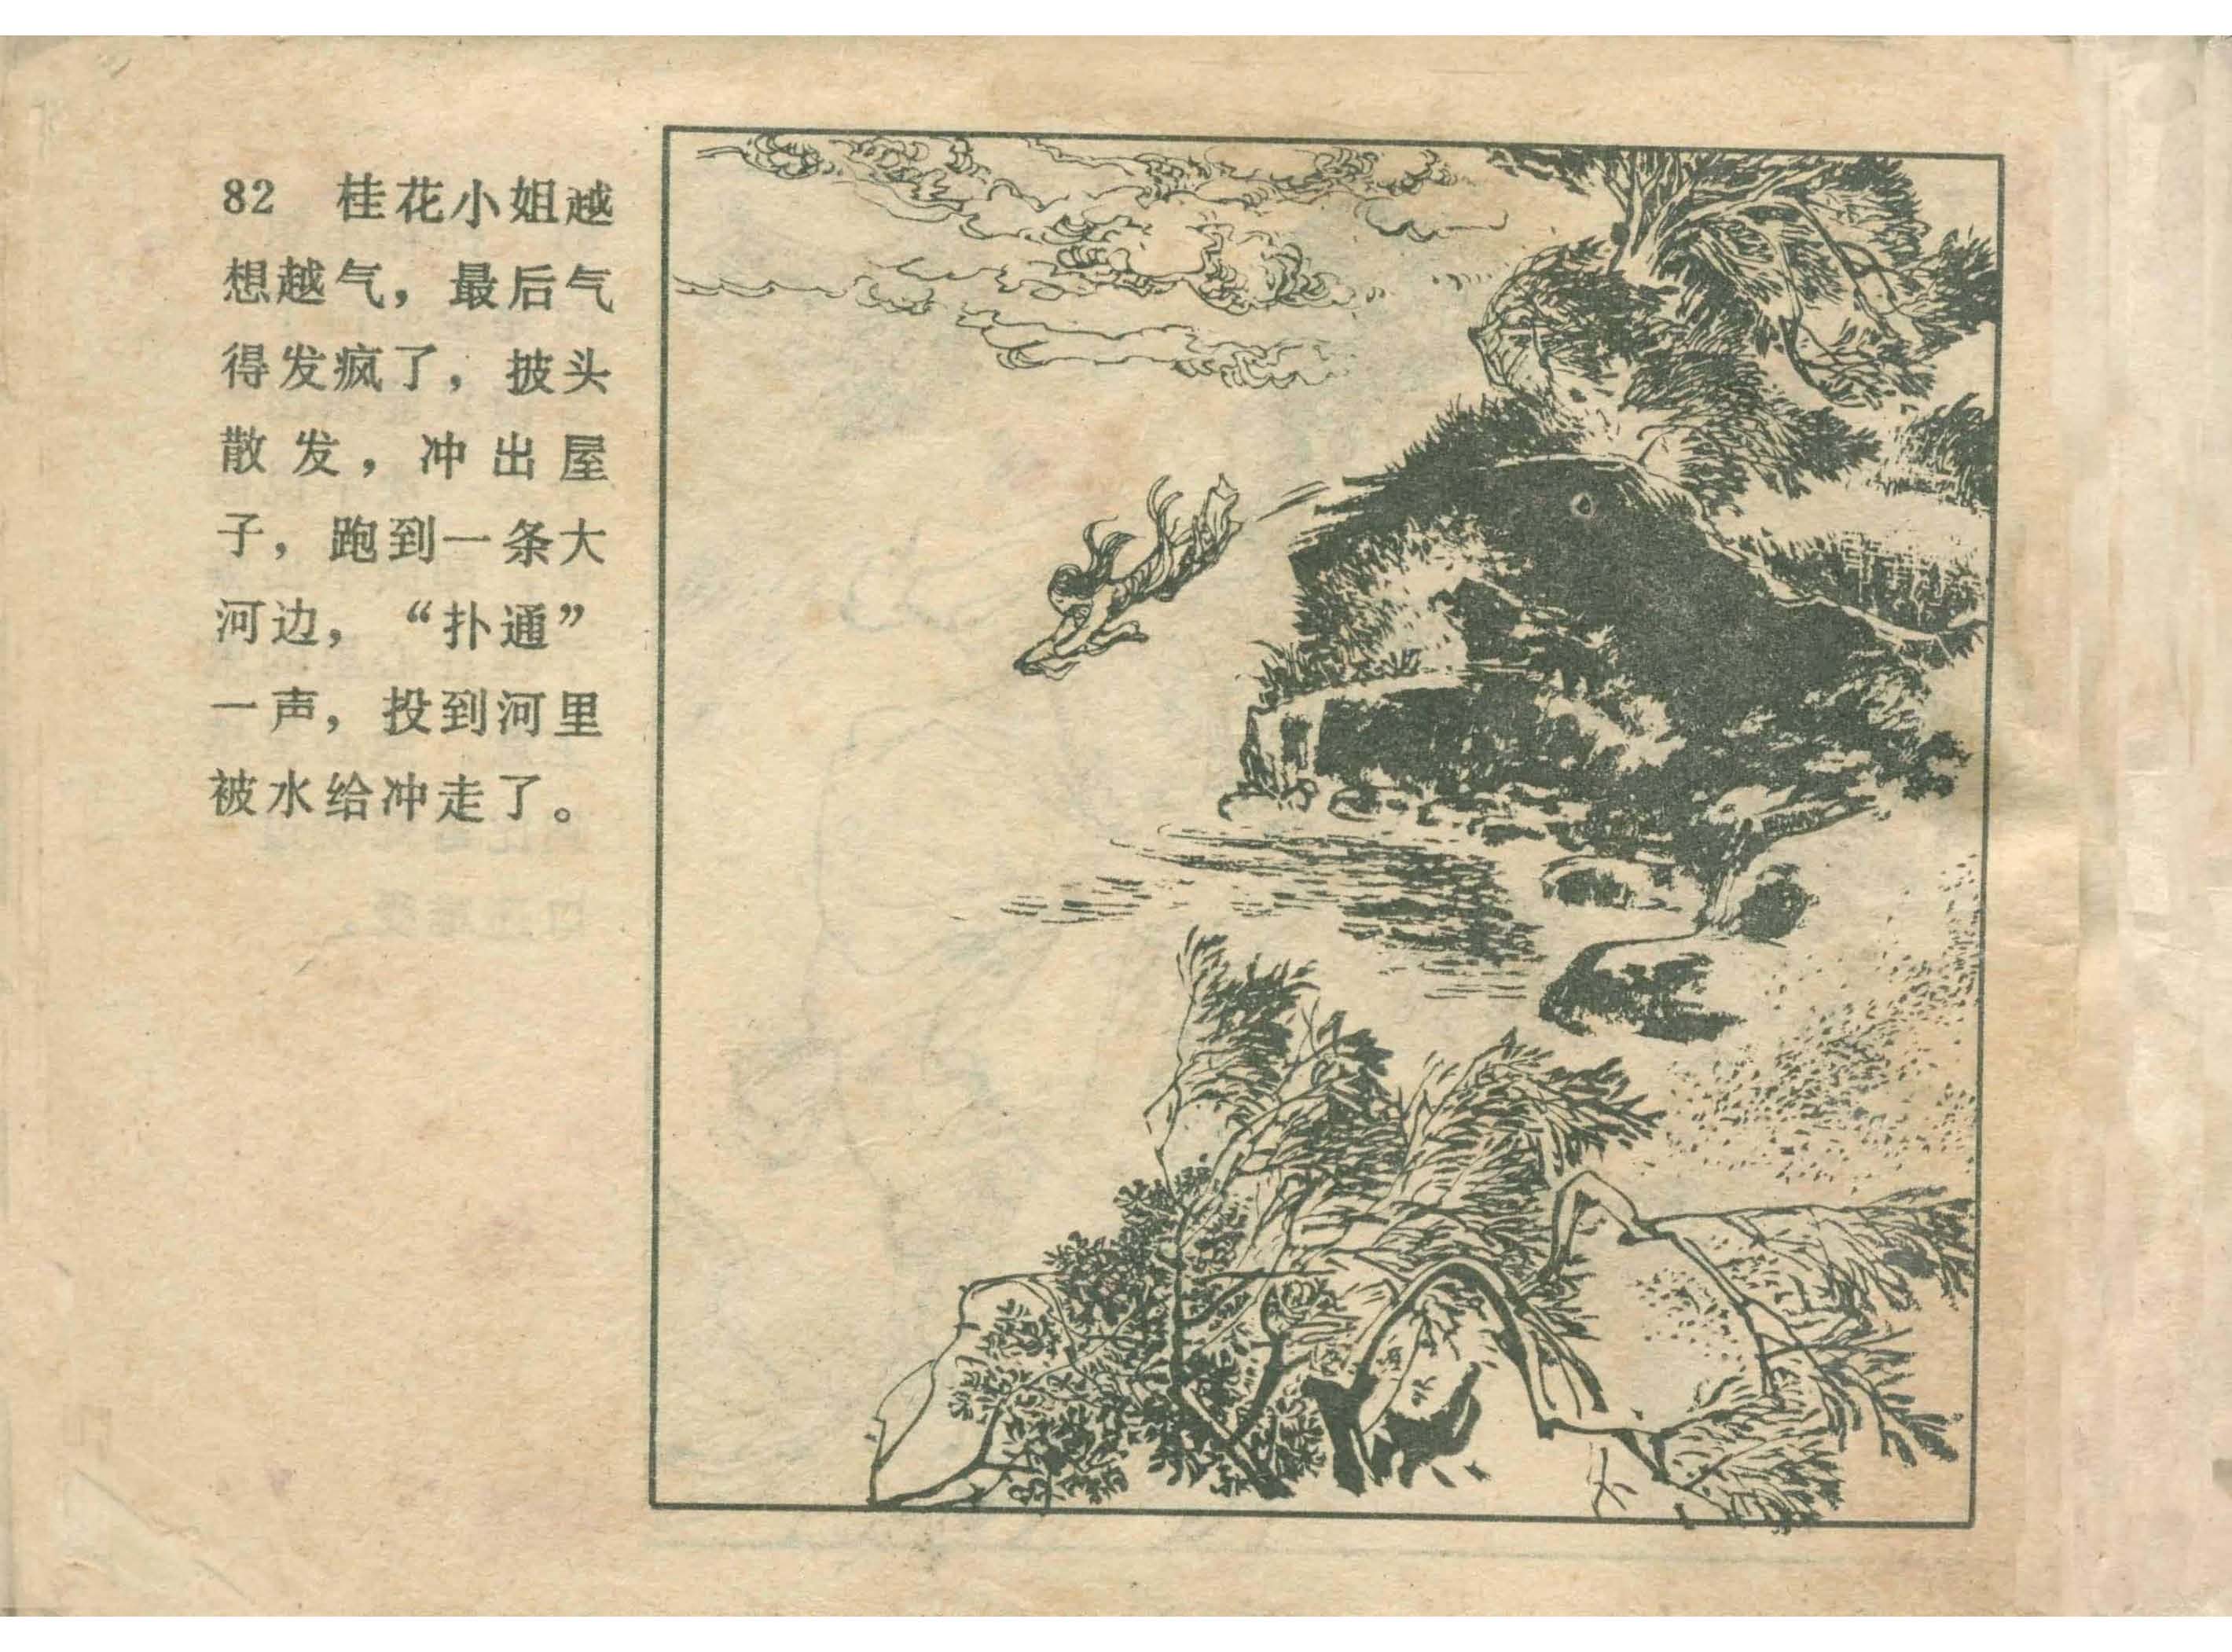 82 桂花小姐越
想越气，最后气
得发疯了，披头
散发，冲出屋
子，跑到一条大
河边，“扑通”
一声，投到河里
被水给冲走了。